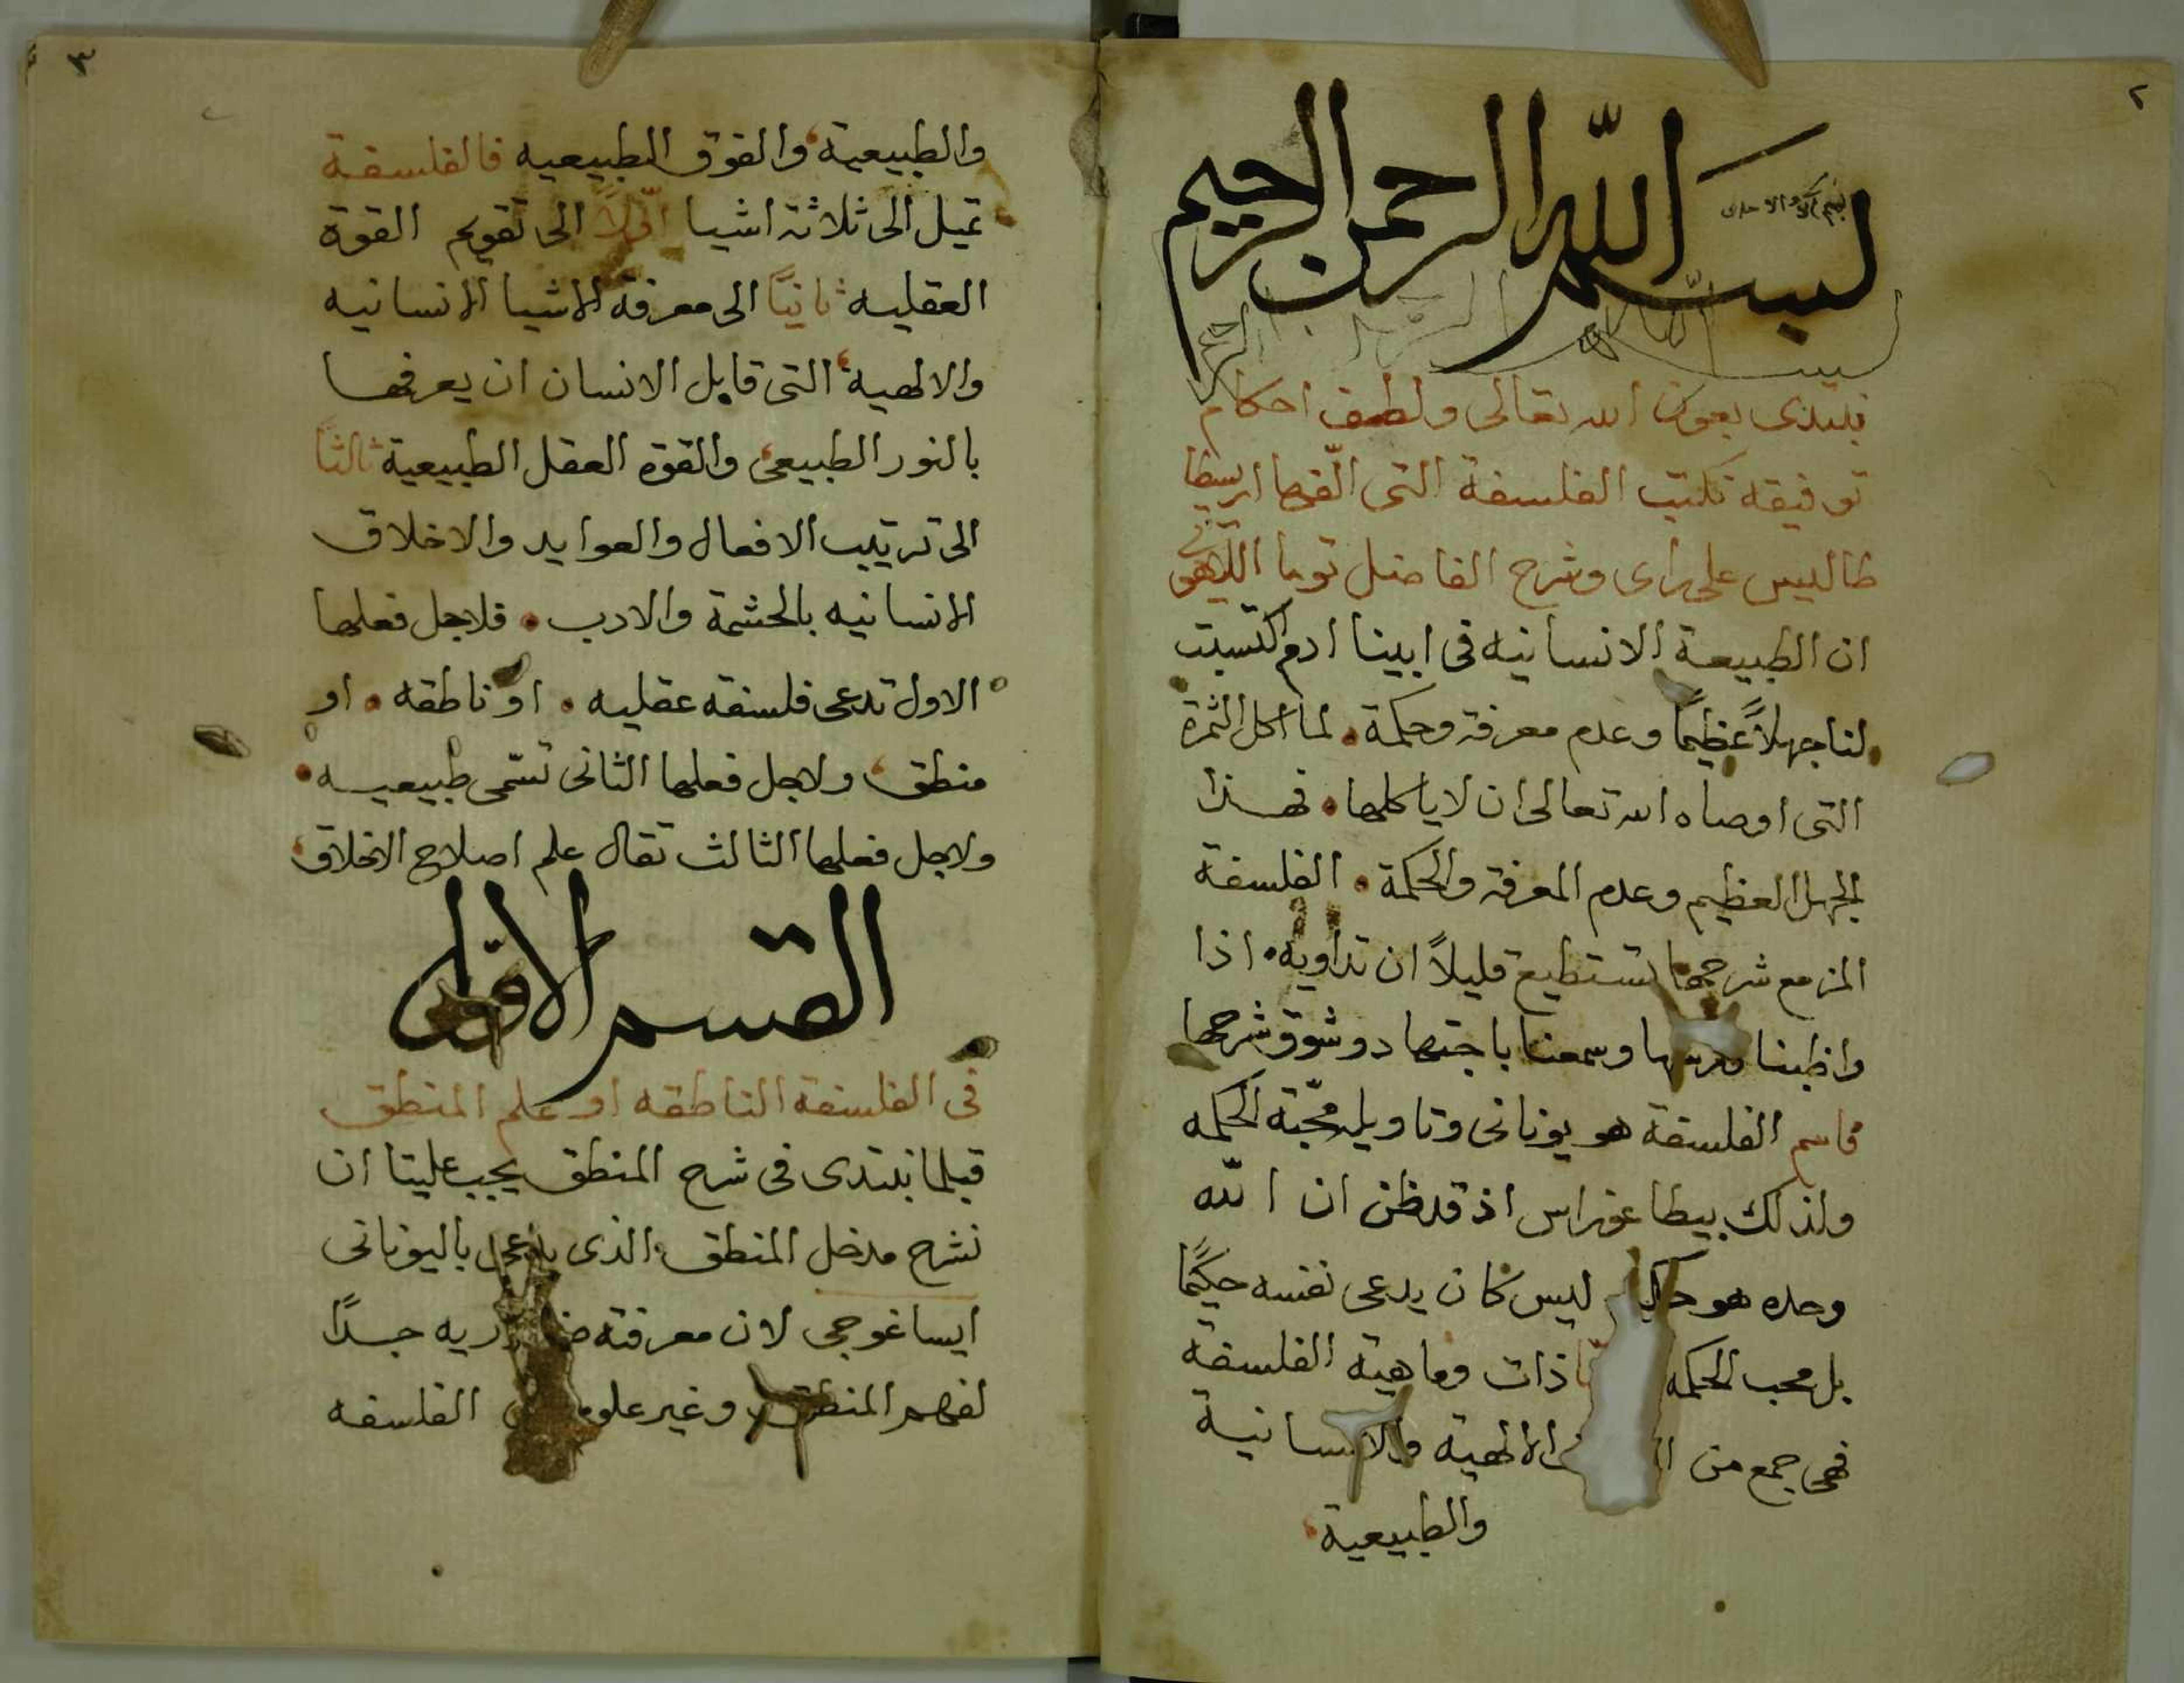 ٢
بسم الله الرحمن الرحيم
نبتدى بعون الله تعالى ولطف احكام
توفيقه نكتب الفلسفة التى الّفها اريسطا
طاليس على راى وشرح الفاضل توما اللاهوتى
ان الطبيعة الانسانيه فى ابينا ادم اكتسبت
لنا جهلاً عظيمًا وعدم معرفة وحكمة. لما اكل الثمرة
التى اوصاه الله تعالى ان لا ياكلها. فهذا
الجهل العظيم وعدم المعرفة والحكمة. الفلسفة
المزمع شرحها تستطيع قليلاً ان تداويه. اذا
واظبنا درسها وسمعنا باجتهاد وشوق شرحها
فاسم الفلسفة هو يونانى وتاويله محبّة الحكمه
ولذلك بيطاغوراس اذ قد ظن ان الله
وحده هو حكيم ليس كان يدعى نفسه حكيمًا
بل محب الحكمه ذات وماهية الفلسفة
فهى جمع من الالهية والانسانية
والطبيعية
٣
والطبيعية والفوق الطبيعيه فالفلسفة
تميل الى ثلاثة اشيا اوّلاً الى تقويم القوة
العقليه ثانيًا الى معرفة الاشيا الانسانيه
والالهية التى قابل الانسان ان يعرفها
بالنور الطبيعى والقوة العقل الطبيعية ثالثًا
الى ترتيب الافعال والعوايد والاخلاق
الانسانيه بالحشمة والادب. فلاجل فعلها
الاول تدعى فلسفه عقليه. او ناطقه. او
منطق ولاجل فعلها الثانى تسّمى طبيعيه.
ولاجل فعلها الثالث تقال علم اصلاح الاخلاق
القسم الاوّل
فى الفلسفة الناطقه او علم المنطق
قبلما نبتدى فى شرح المنطق يجب علينا ان
نشرح مدخل المنطق الذى يدعى باليونانى
ايساغوجى لان معرفته ضروريه جدًا
لفهم المنطق وغير علوم الفلسفه